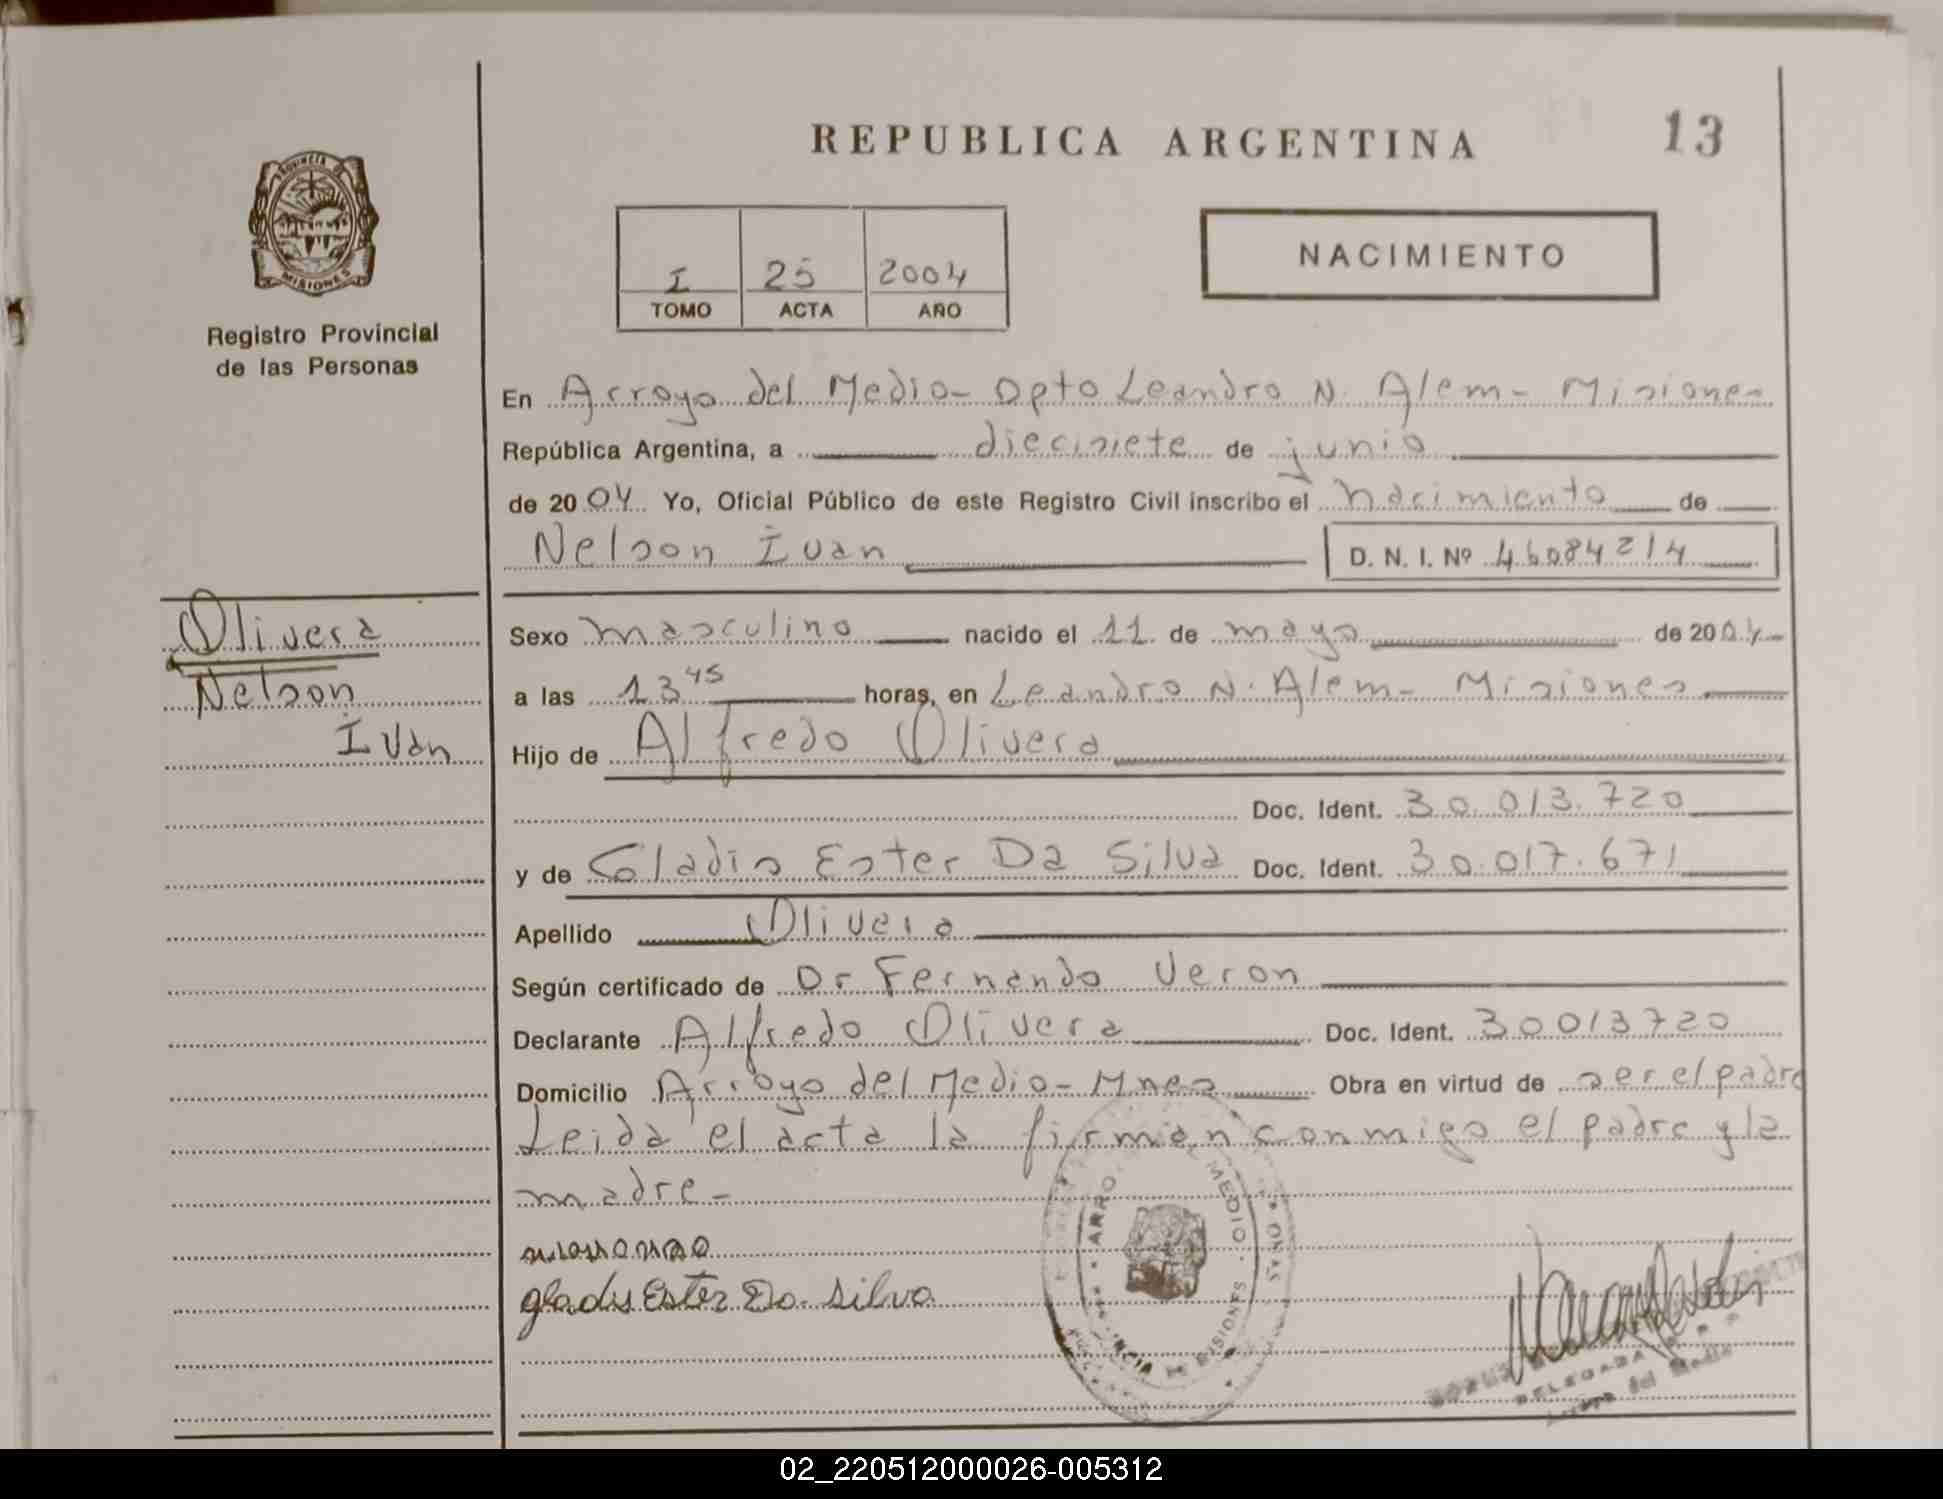 REPUBLICA ARGENTINA
13
PROVINCIA
MISIONES
Registro Provincial
de las Personas
I 25 2004
TOMO ACTA AÑO
NACIMIENTO
En Arroyo del Medio - Dpto Leandro N. Alem - Misiones
República Argentina, a diecisiete de junio
de 2004 Yo, Oficial Público de este Registro Civil inscribo el nacimiento de
Nelson Ivan D. N. I. Nº 46084214
Olivera
Nelson
Ivan
Sexo masculino nacido el 11 de mayo de 2004
a las 13 45 horas, en Leandro N. Alem - Misiones
Hijo de Alfredo Olivera
Doc. Ident. 30.013.720
y de Gladis Ester Da Silva Doc. Ident. 30.017.671
Apellido Olivera
Según certificado de Dr Fernando Veron
Declarante Alfredo Olivera Doc. Ident. 30013720
Domicilio Arroyo del Medio - Mnes Obra en virtud de ser el padre
Leida el acta la firman conmigo el padre y la
madre -
gladys Ester Da Silva
DELEGADA
Arroyo del Medio
02_220512000026-005312